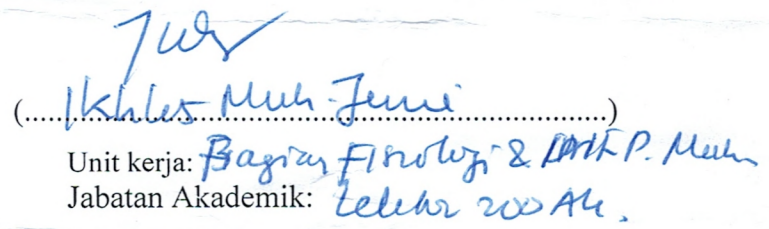 (Ikhlas Muh. Jenie)
Unit kerja: Bagian Fisiologi &
Jabatan Akademik: Lektor 200 AK.